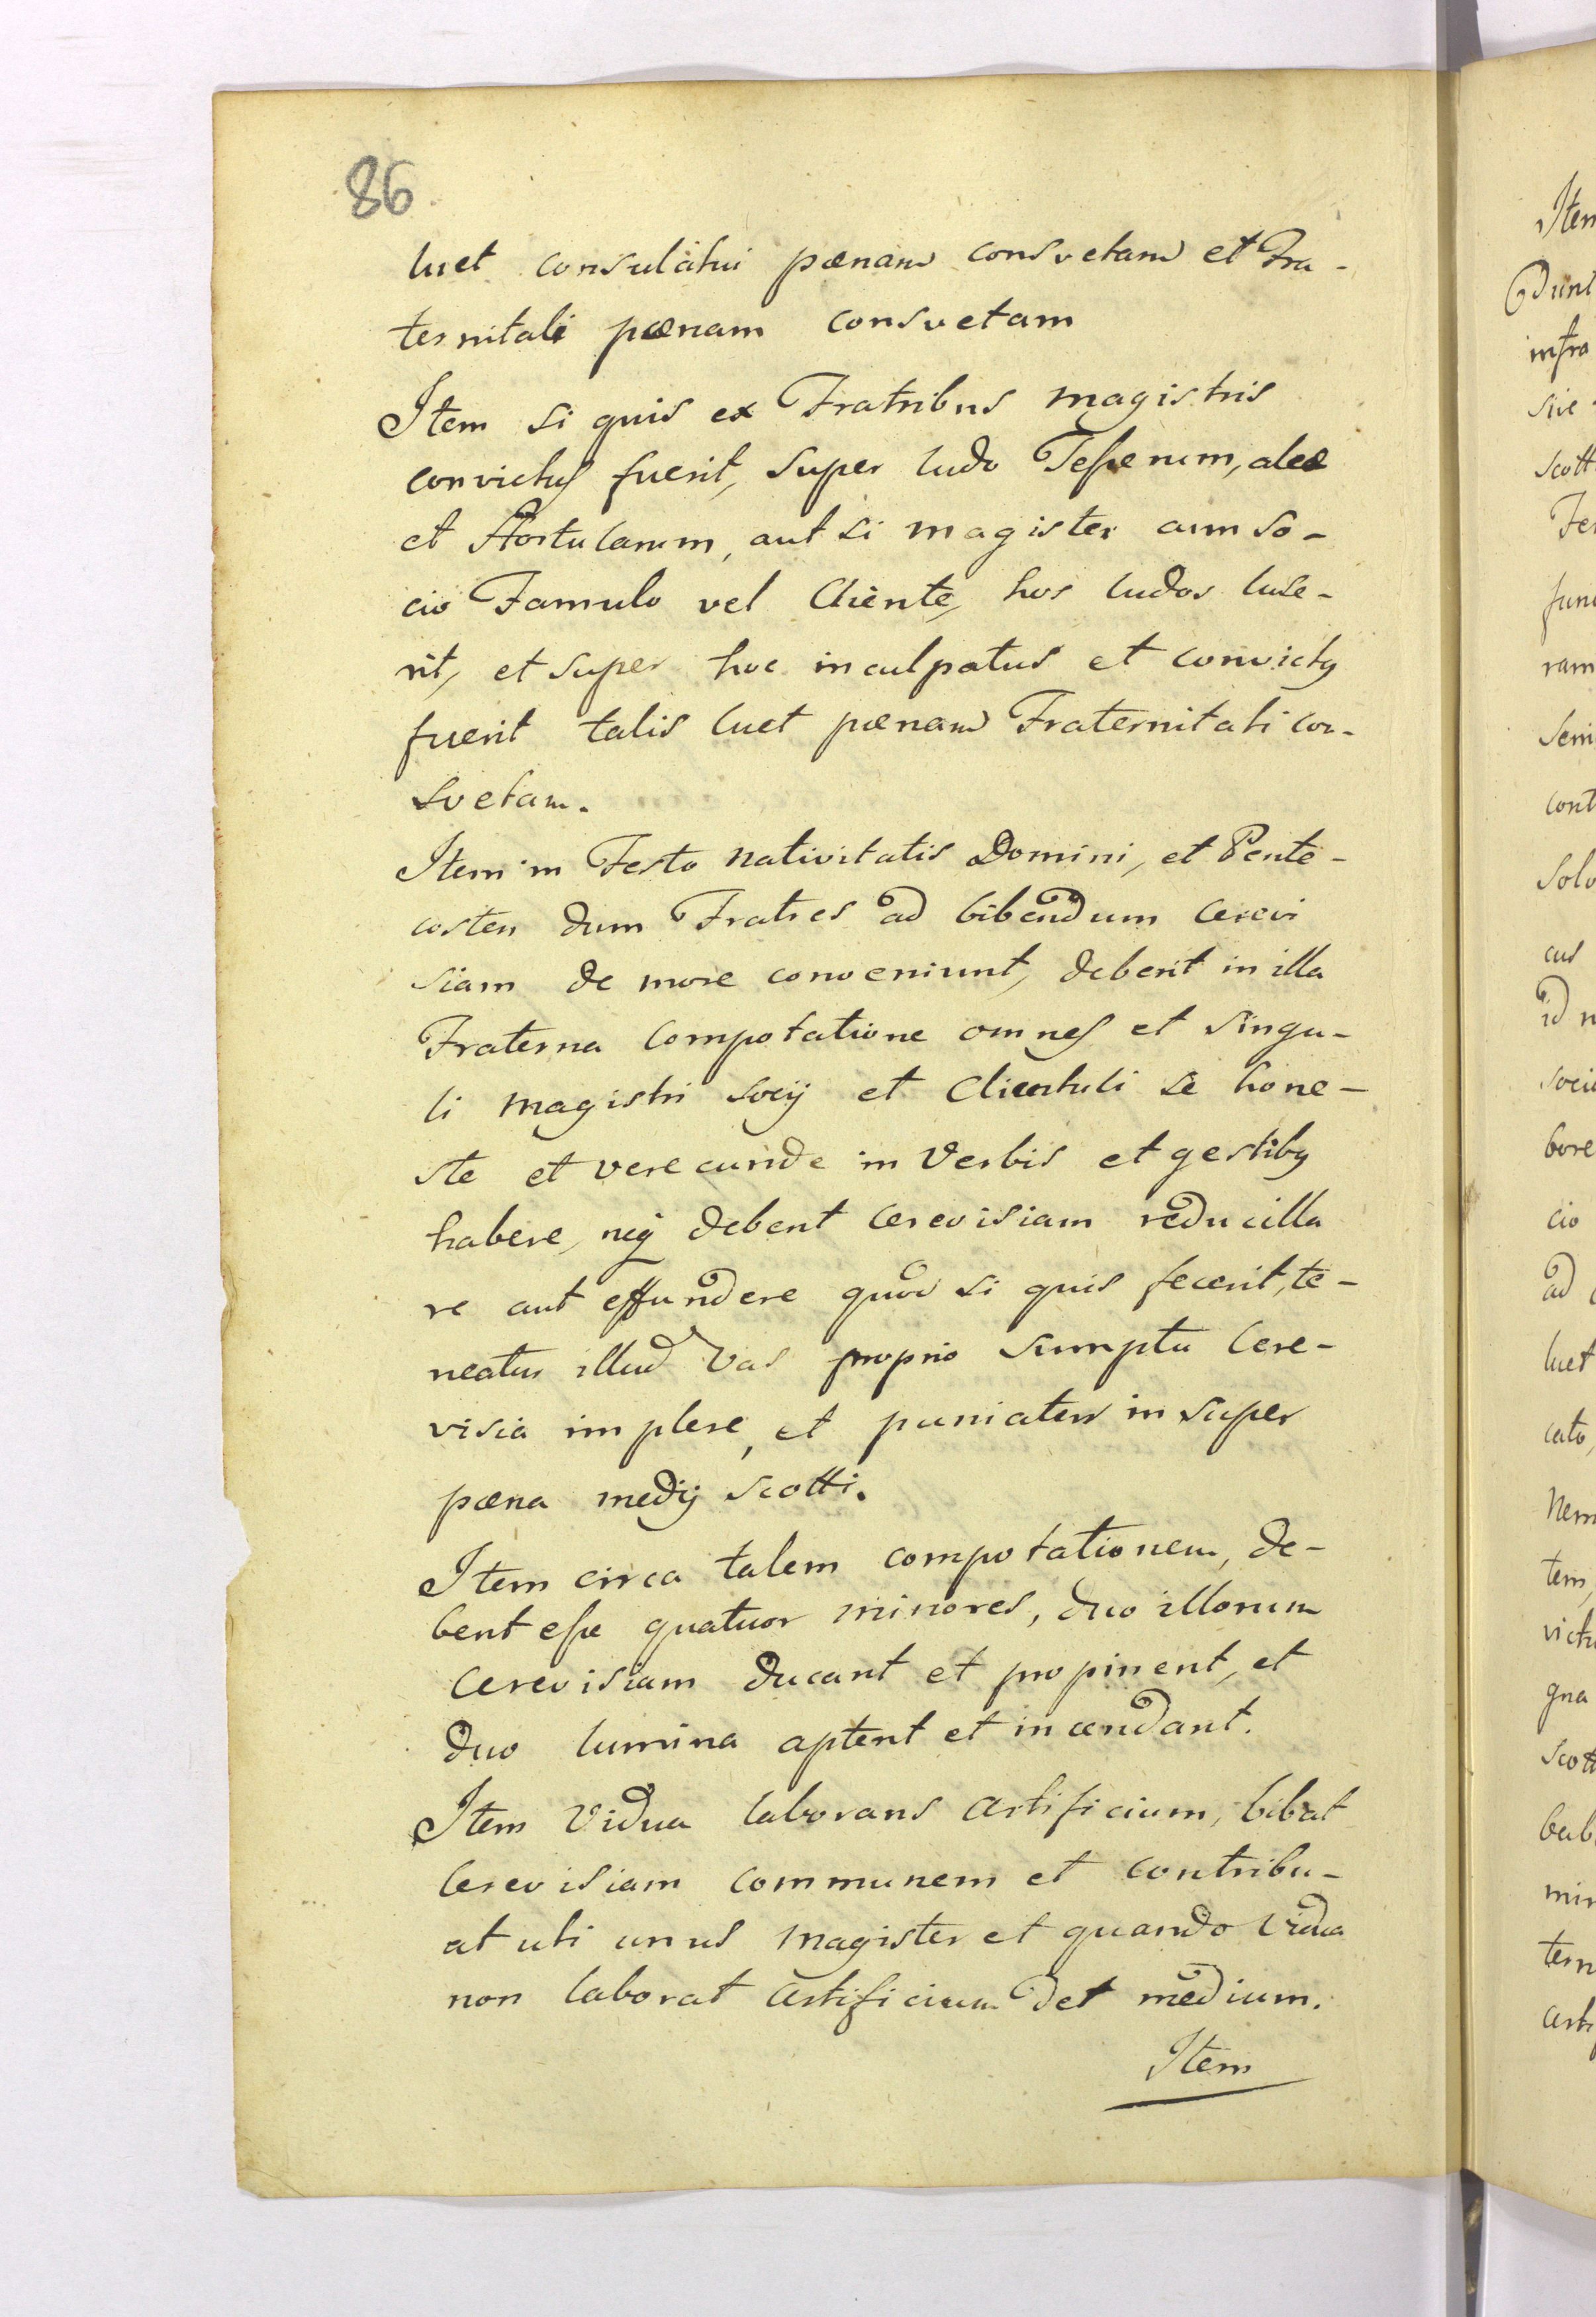 86
luet consulatui pœnam consvetam et Fra-
ternitati pœnam consvetam
Item si quis ex Fratribus magistris
convictus fuerit, super ludo Tesserum, aleæ
et Hortularum, aut si magister cum so-
cio Famulo vel Cliente, hos ludos luse-
rit, et super hoc inculpatus et convictus
fuerit talis luet pœnam Fraternitati con-
svetam.
Item in Festo nativitatis Domini, et Pente-
costen dum Fratres ad bibendum Cerevi
siam de more conveniunt, deberit in illa
Fraterna Compotatione omnes et singu-
li magistri socij et Clientuli se hone-
ste et verecunde in Verbis et gestibus
habere, neq debent Cerevisiam reducilla
re aut effundere quod si quis fecerit, te-
neatur illud Vas proprio sumptu Cere-
visia implere, et puniatur insuper
pœna medij scotti.
Item circa talem compotationem, de-
bent esse quatuor minores, duo illorum
Cerevisiam ducant et propinent, et
duo lumina aptent et incendant.
Item Vidua laborans Artificium, bibat
Cerevisiam communem et contribu-
at uti unus magister et quando Vidua
non laborat Artificium det medium.
Item
Item
dunt
infra
sive
scott
Fer
fun
ram
semi
cont
Solv
cus
id n
socie
bore
cio
ad
luet
cato,
Nem
tem,
victu
gna
Scott
bab
min
tern
arti